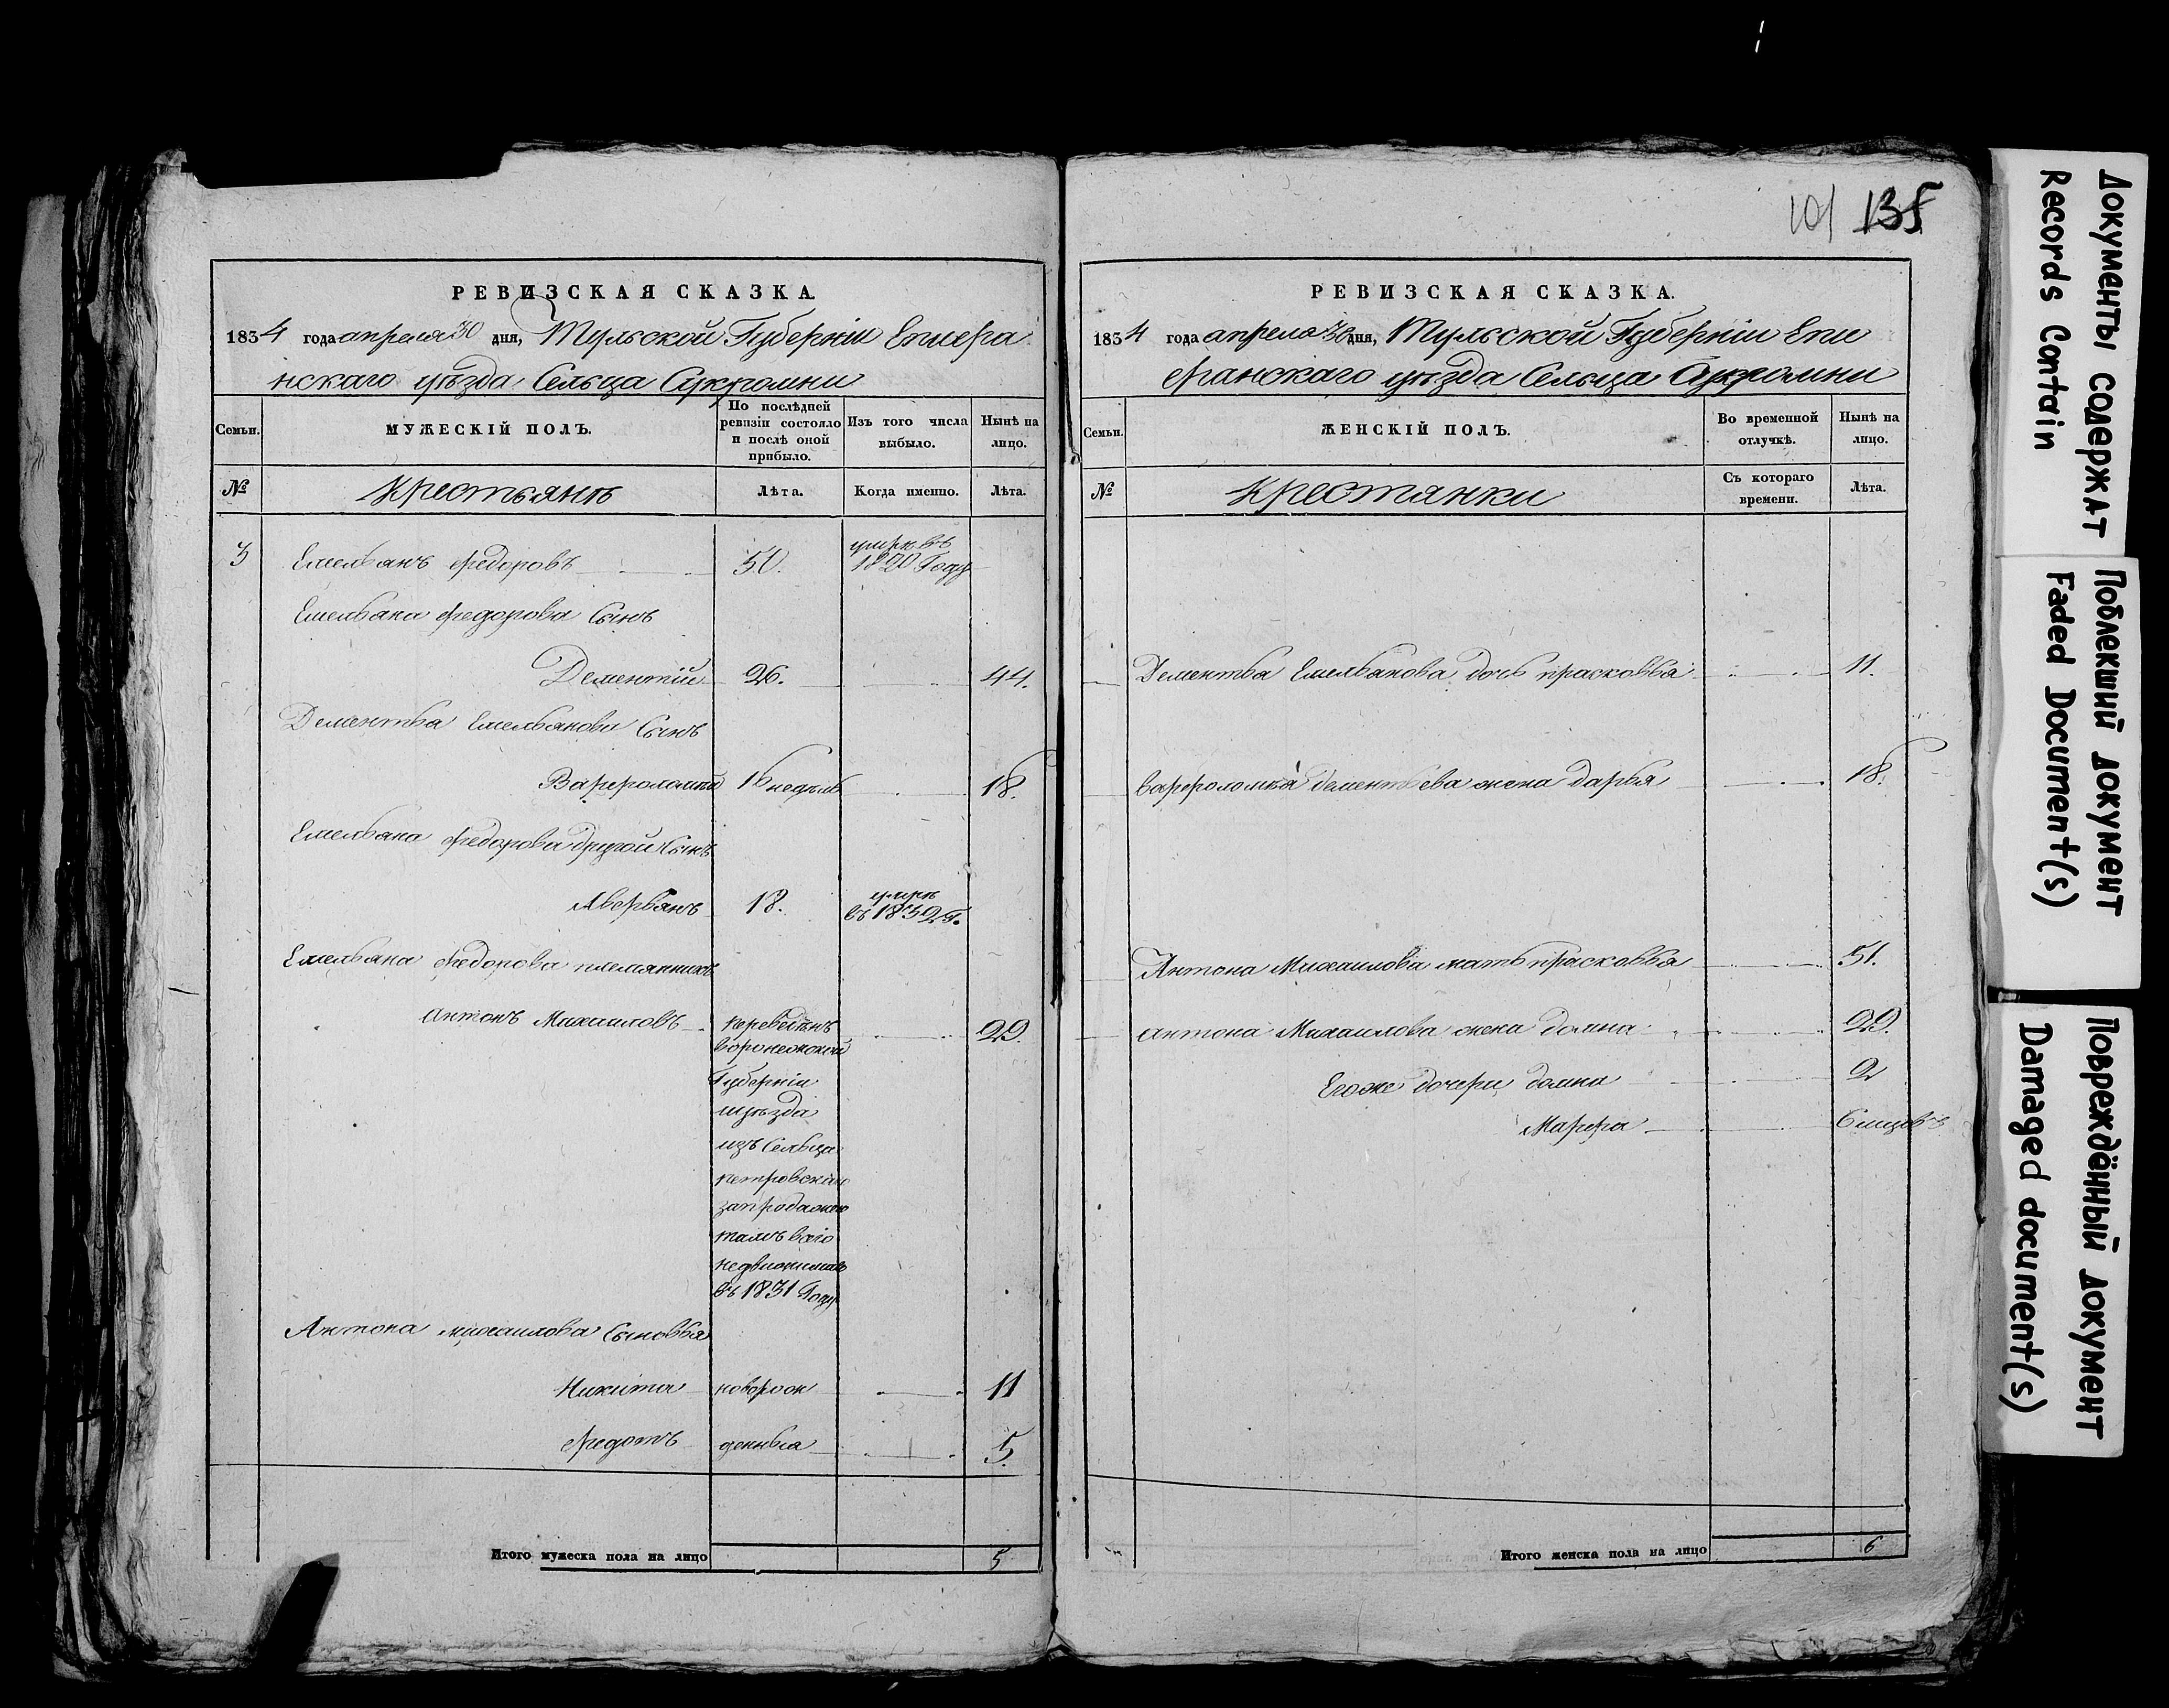 101 135
РЕВИЗСКАЯ СКАЗКА.
1834 года апреля 30 дня, Тульской Губерніи Епифа
нскаго уѣзда Сельца
Семьи.
МУЖЕСКІЙ ПОЛЪ.
По послѣдней ревизіи состояло и послѣ оной прибыло.
Изъ того числа выбыло.
Нынѣ на лицо.
№
Крестьянъ
Лѣта.
Когда именно.
Лѣта.
3 Емельянъ Федоровъ 50. умре въ 1820 Году
Емельяна Федорова Сынъ
Дементій 26. 44.
Дементья Емельянова Сынъ
Варфоломей 16 недель 18.
Емельяна Федорова другой Сынъ
Аверьянъ 18. умре въ 1832 г.
Емельяна Федорова племянникъ
Антонъ Михаиловъ 29.
Губерніи
изъ Сельца
недвижимаго
въ 1831 Году
Антона Михаилова Сыновья
Никита новорож 11
Федотъ денныя 5.
Итого мужеска пола на лицо 5
РЕВИЗСКАЯ СКАЗКА.
1834 года апреля 30 дня, Тульской Губерніи Епи
фанскаго уѣзда Сельца
Семьи.
ЖЕНСКІЙ ПОЛЪ.
Во временной отлучкѣ.
Нынѣ на лицо.
№
Крестянки
Съ котораго времени.
Лѣта.
Дементья Емельянова дочь прасковья 11.
Варфоломея дементьева жена дарья 18.
Антона Михаилова мать прасковья 51.
Антона Михаилова жена домна 29.
Егоже дочери домна 2
Марфа 6
Итого женска пола на лицо 6
Документы содержат
Records Contain
Поблекший документ
Faded Document(s)
Повреждённый документ
Damaged document(s)